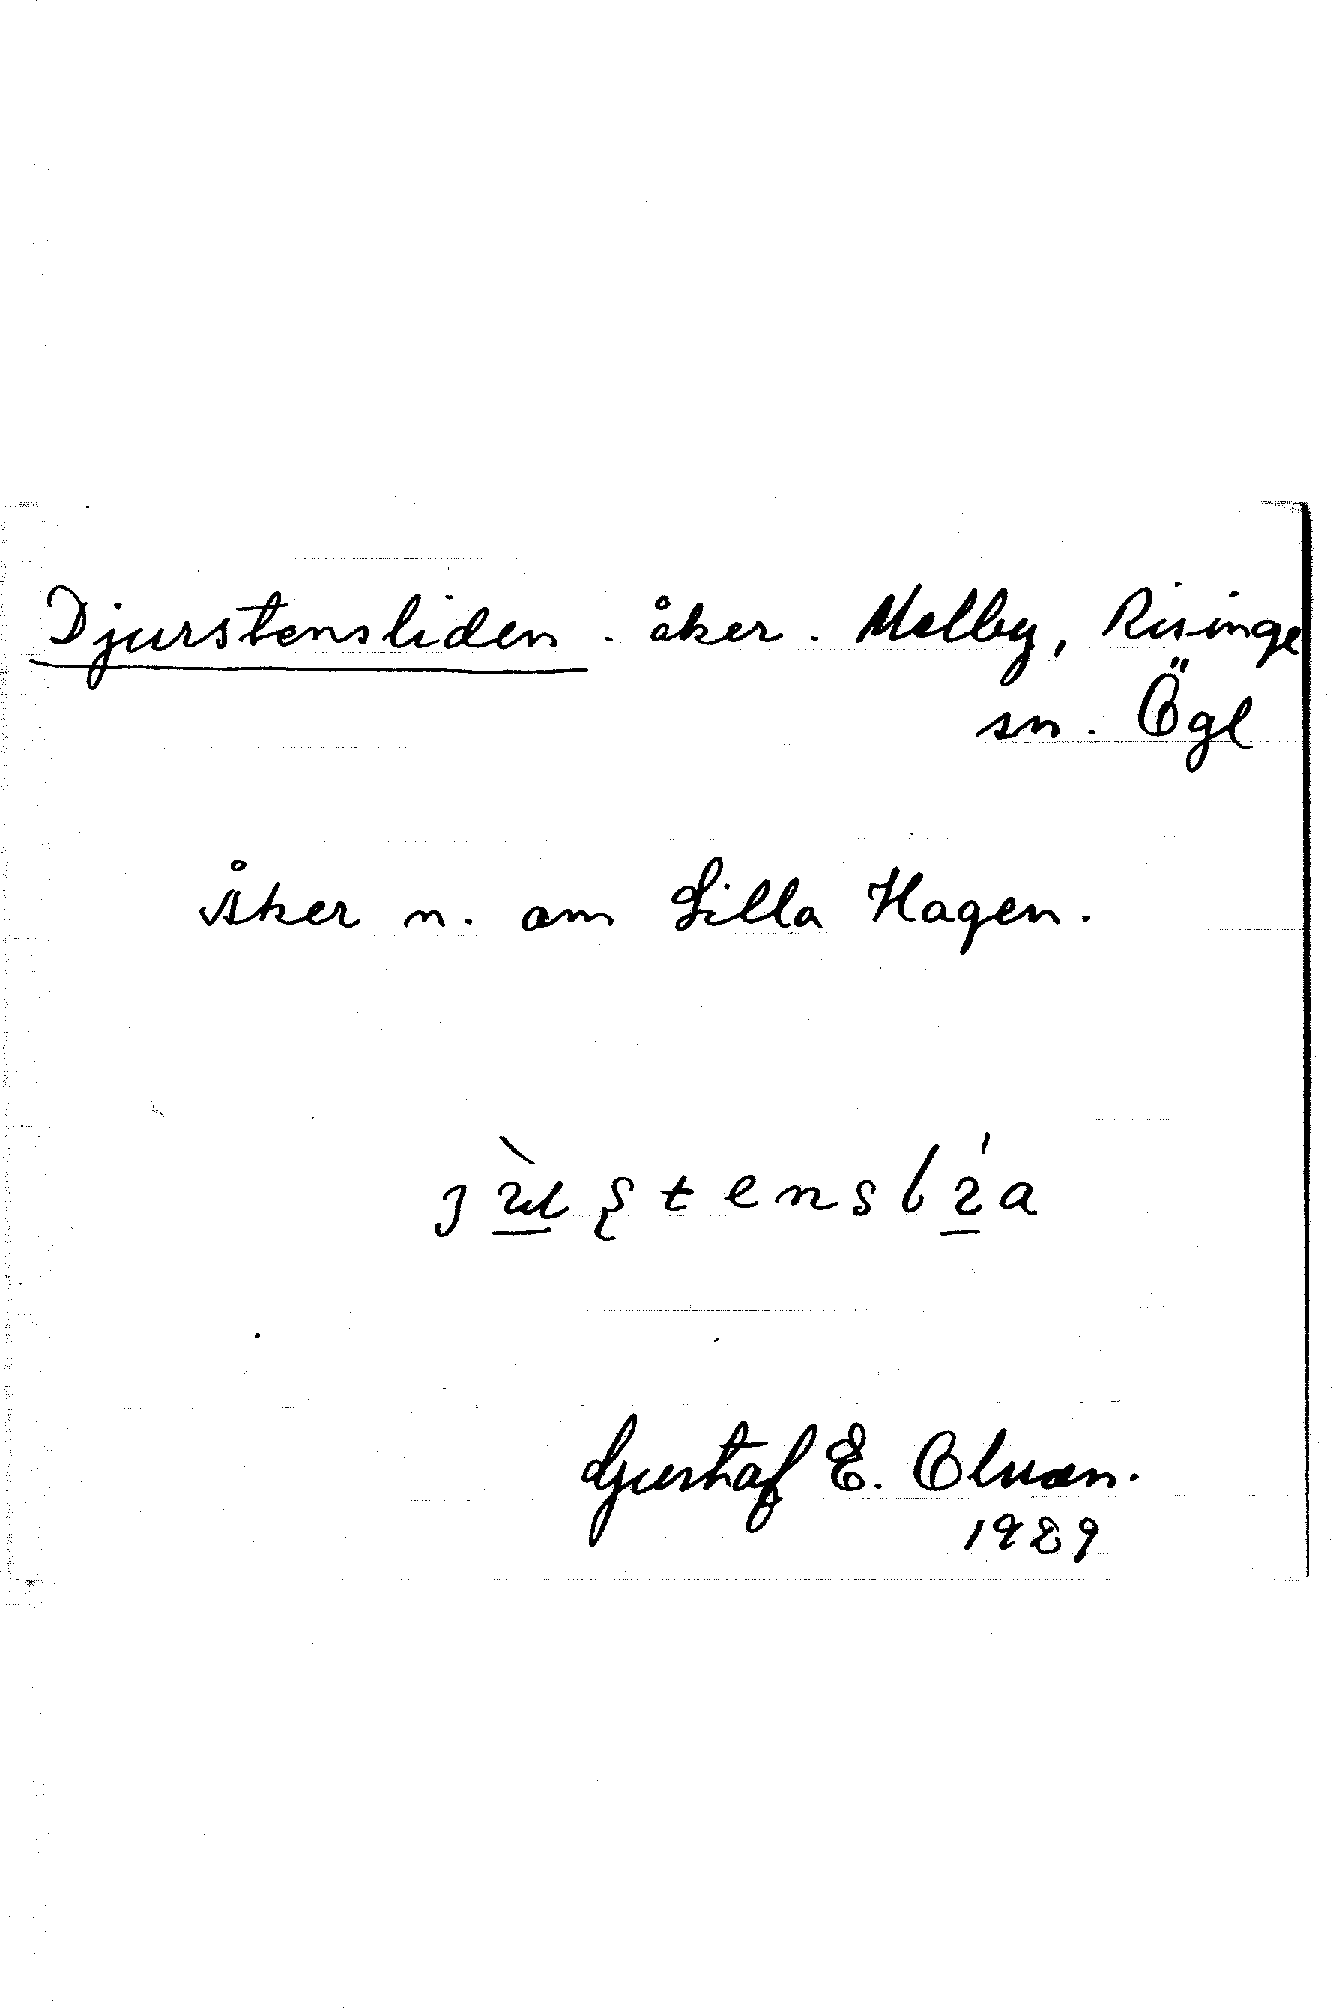 Djurstensliden . åker . Melby, Risinge
sn. Ögl
Åker n. om Lilla Hagen.
Gustaf E. Olsson.
1929